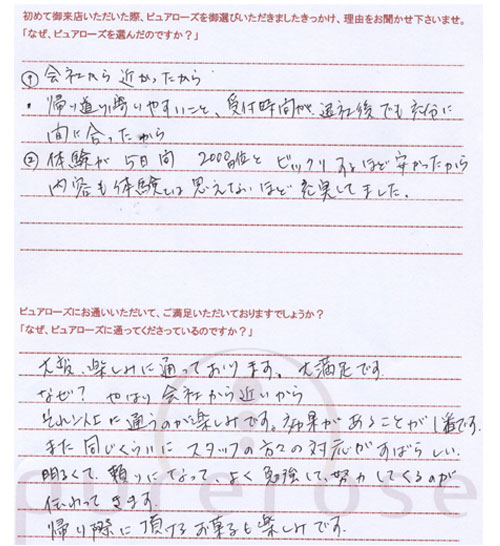 初めて御来店いただいた際、ピュアローズを御選びいただきましたきっかけ、理由をお聞かせ下さいませ。
「なぜ、ピュアローズを選んだのですか？」
① 会社から近かったから
・帰り道に寄りやすいこと、受付時間が退社後でも充分に
間に合ったから
② 体験が5日間 2000円位とビックリするほど安かったから
内容も体験とは思えないほど充実してました。
ピュアローズにお通いいただいて、ご満足いただいておりますでしょうか？
「なぜ、ピュアローズに通ってくださっているのですか？」
大変、楽しみに通っております。大満足です
なぜ？ やはり会社から近いから
それ以上に通うのが楽しみです。効果があることが1番です。
また同じくらいにスタッフの方々の対応がすばらしい
明るくて、頼りになって、よく勉強して、努力してくるのが
伝わってきます。
帰り際に頂けるお菓子も楽しみです。
purerose